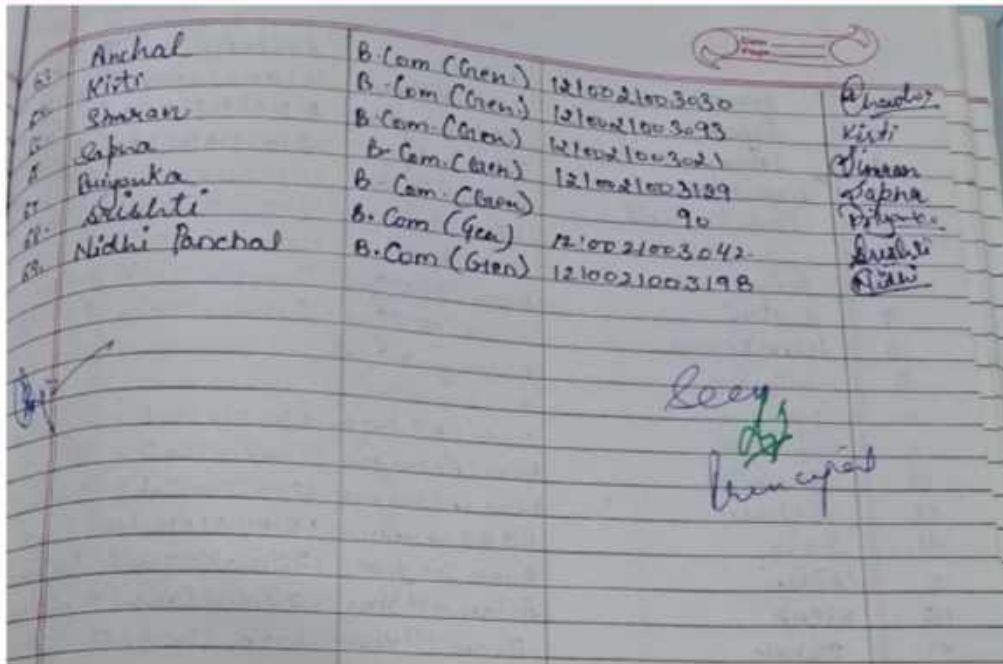 63. Anchal B.Com (Gen.) 1210021003030
Kirti B.Com (Gen.) 1210021003093 Kirti
Simran B.Com. (Gen) 1210021003021 Simran
Sapna B.Com. (Gen) 1210021003129 Sapna
67. Priyanka B.Com. (Gen) 90 Priyanka
68. Srishti B.Com (Gen) 1210021003042. Srishti
69. Nidhi Panchal B.Com (Gen) 1210021003198 Nidhi
Seen
Principal